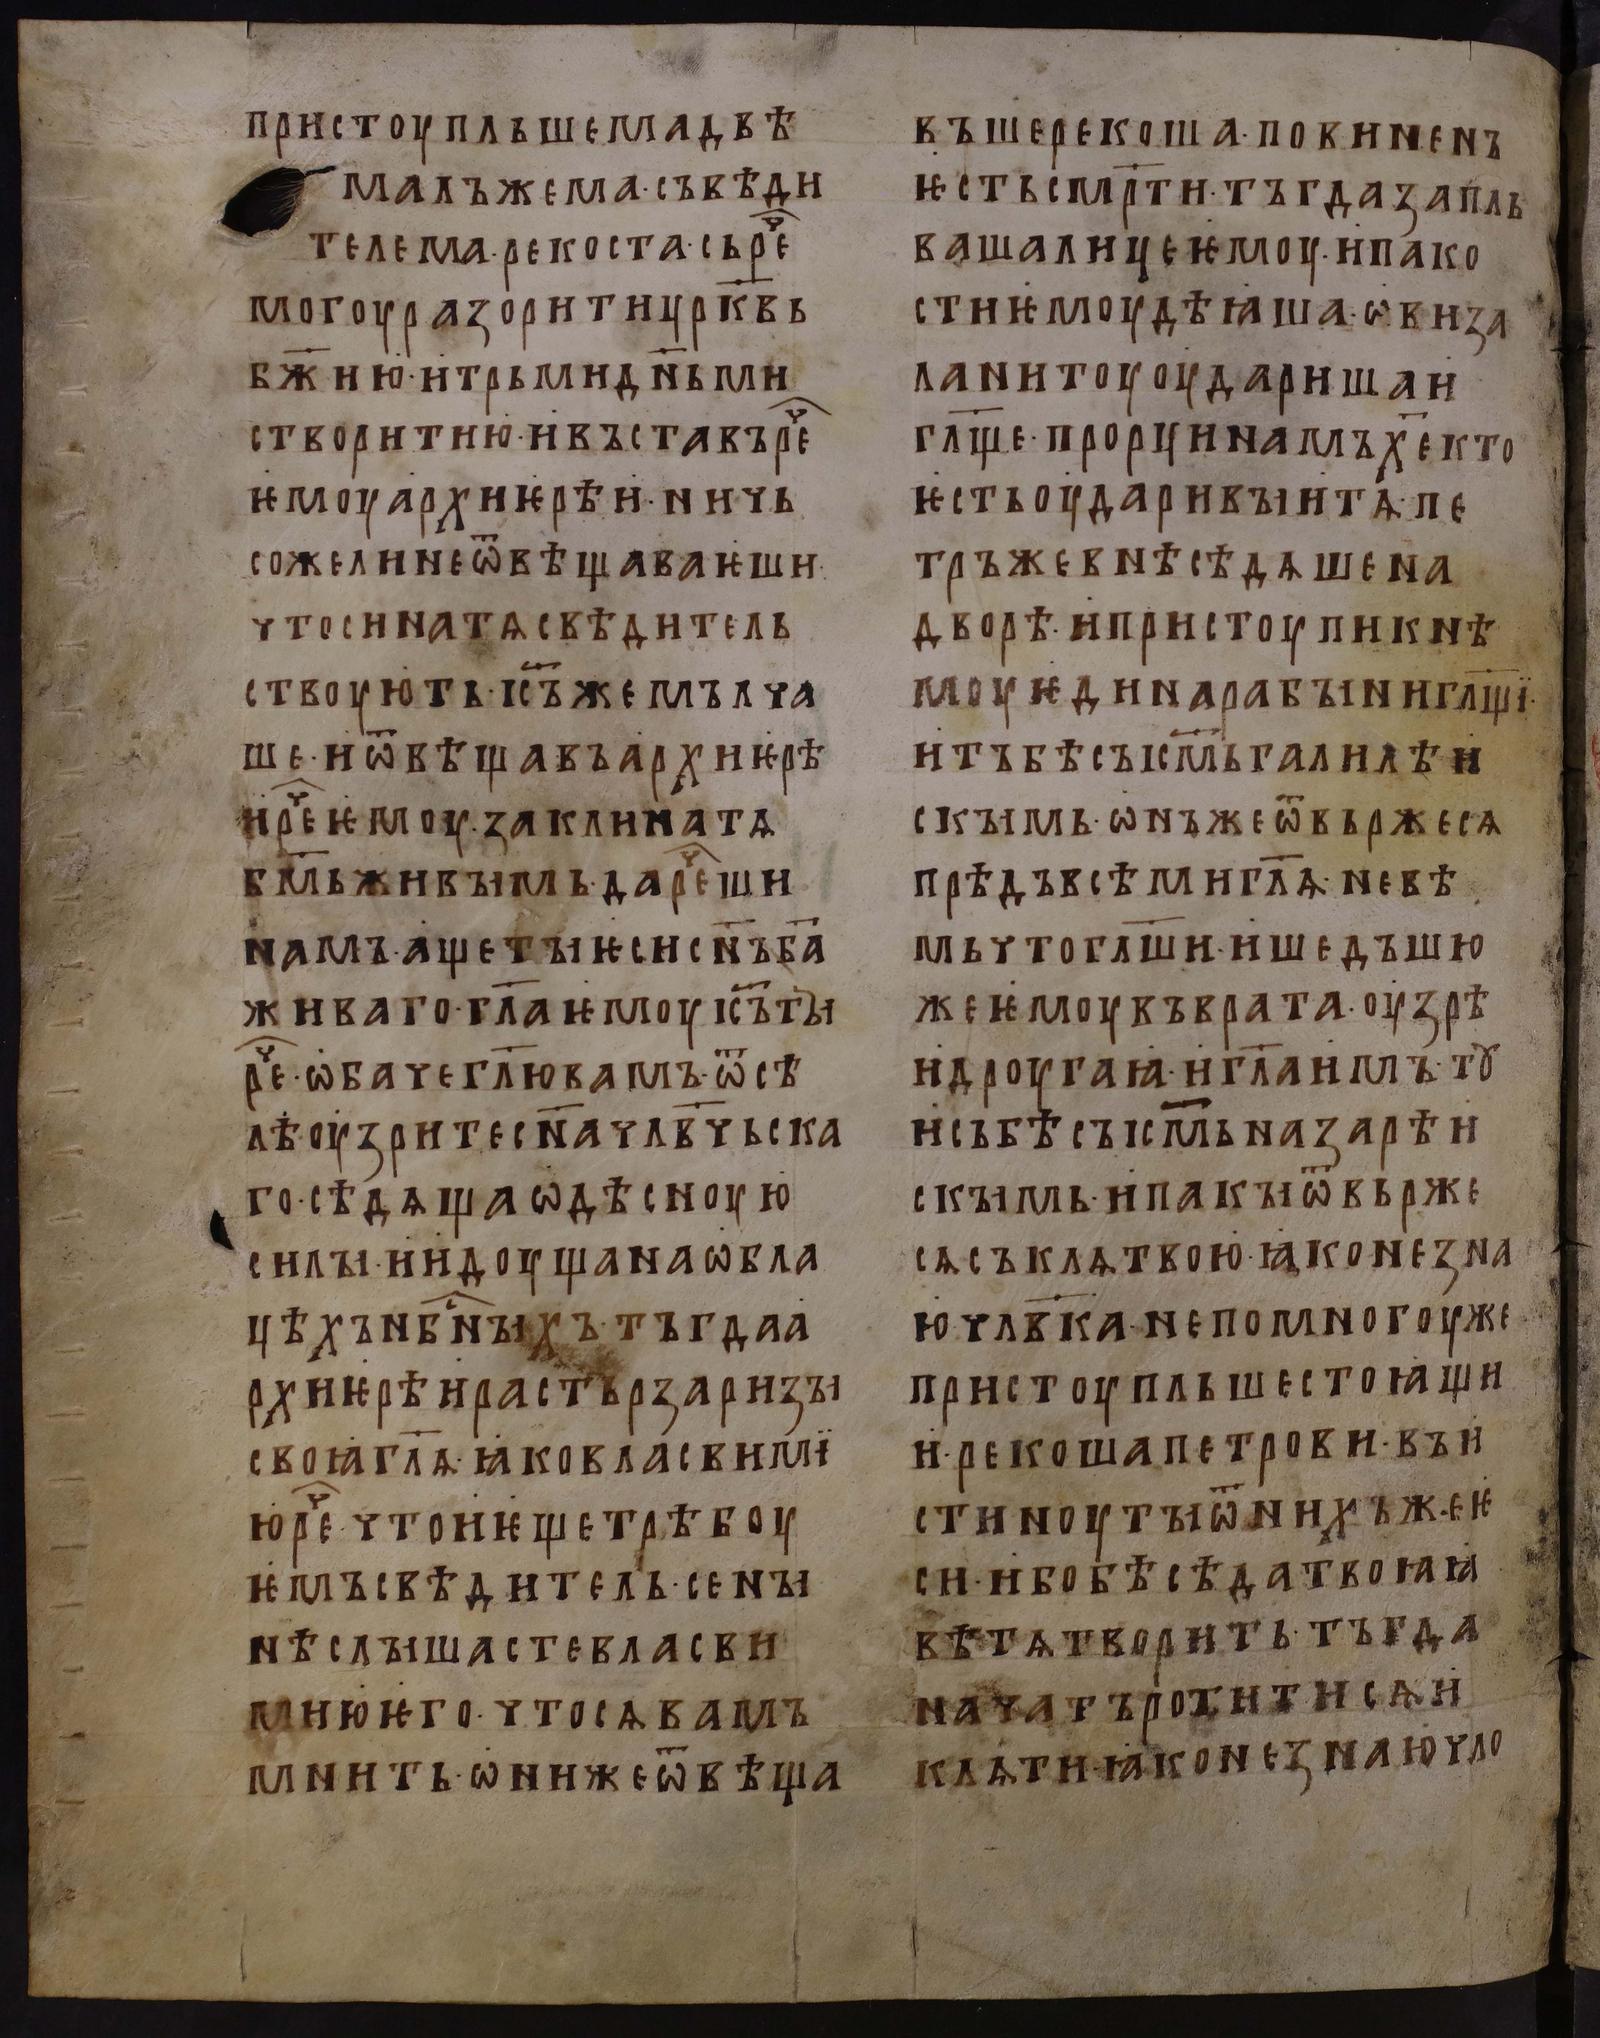 пристоупльшемадвѣ
малъжема·съвѣди
телема·рекоста·сьрⷱ҇е
могоуразоритицрк҃вь
бж҃ию·итрьмидн҃ьми
створитию·ивъставърⷱ҇е
ѥмоуархиѥрѣи·ничь
сожелинеѿвѣщаваѥши·
чтосинатѧсвѣдитель
ствоують·іс҃ъжемълча
ше·иѿвѣщавъархиѥрѣ
ирⷱ҇еѥмоу·заклинатѧ
бм҃ьживымь·дарⷱ҇еши
намъ·ащетыѥсисн҃ъба҃
живаго·гл҃аѥмоуіс҃ъты
рⷱ҇е·ѡбачегл҃ювамъ·ѿсѣ
лѣоузритесн҃ачлв҃чьска
го·сѣдѧщаѡдѣсноую
силы·иидоущанаѡбла
цѣхънбⷭ҇ныхъ·тъгдаа
рхиѥрѣирастьрзаризы
своꙗгл҃ѧ·ꙗковласвимї
юрⷱ҇е·чтоиѥщетрѣбоу
ѥмъсвѣдитель·сены
нѣслышастевласви
миюѥго·чтосѧвамъ
мнить·ѡнижеѿвѣща
въшерекоша·повиненъ
ѥстьсмр҃ти·тъгдазапль
вашалицеѥмоу·ипако
стиѥмоудѣꙗша·ѡвиза
ланитоуоударишаи
гл҃ще·прорцинамъх҃екто
ѥстьоударивыитѧ·пе
тръжевнѣсѣдѧшена
дворѣ·ипристоупикнѣ
моуѥдинарабынигл҃щї·
итъбѣсыісм҃ьгалилѣи
скымь·ѡнъжеѿвьржесѧ
прѣдъвсѣмигл҃ѧ·невѣ
мьчтогл҃ши·ишедъшю
жеѥмоувъврата·оузрѣ
идроугаꙗ·игл҃аимъ·тꙋ
исьбѣсъісм҃ьназарѣи
скымь·ипакыѿвьрже
сѧсъклѧтвою·ꙗконезна
ючлв҃ка·непомногоуже
пристоупльшестоꙗщи
и·рекошапетрови·въи
стиноутыѿнихъж·еѥ
си·ибобѣсѣдатвоꙗꙗ
вѣтѧтворить·тъгда
начатъротитисѧи
клѧти·ꙗконезнаючло